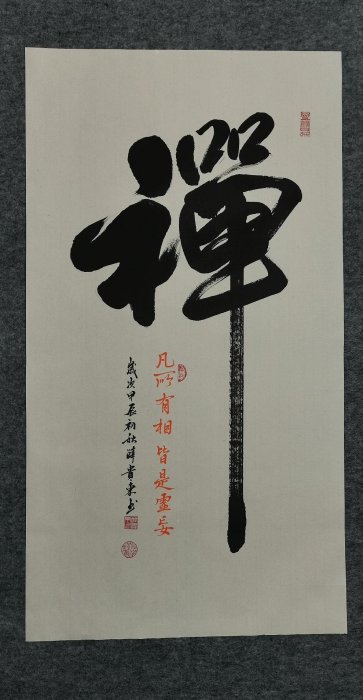 禪
凡所有相皆是虛妄
歲次甲辰初秋
貴東书